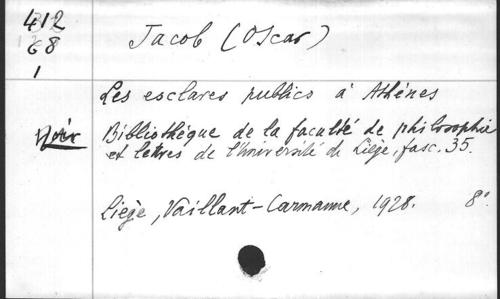 412
68
1
Jacob (Oscar)
Les esclaves publics à Athènes
Voir
Bibliothèque de la faculté de philosophie
et lettres de l'Université de Liège, fasc. 35.
Liège, Vaillant-Carmanne, 1928. 8°